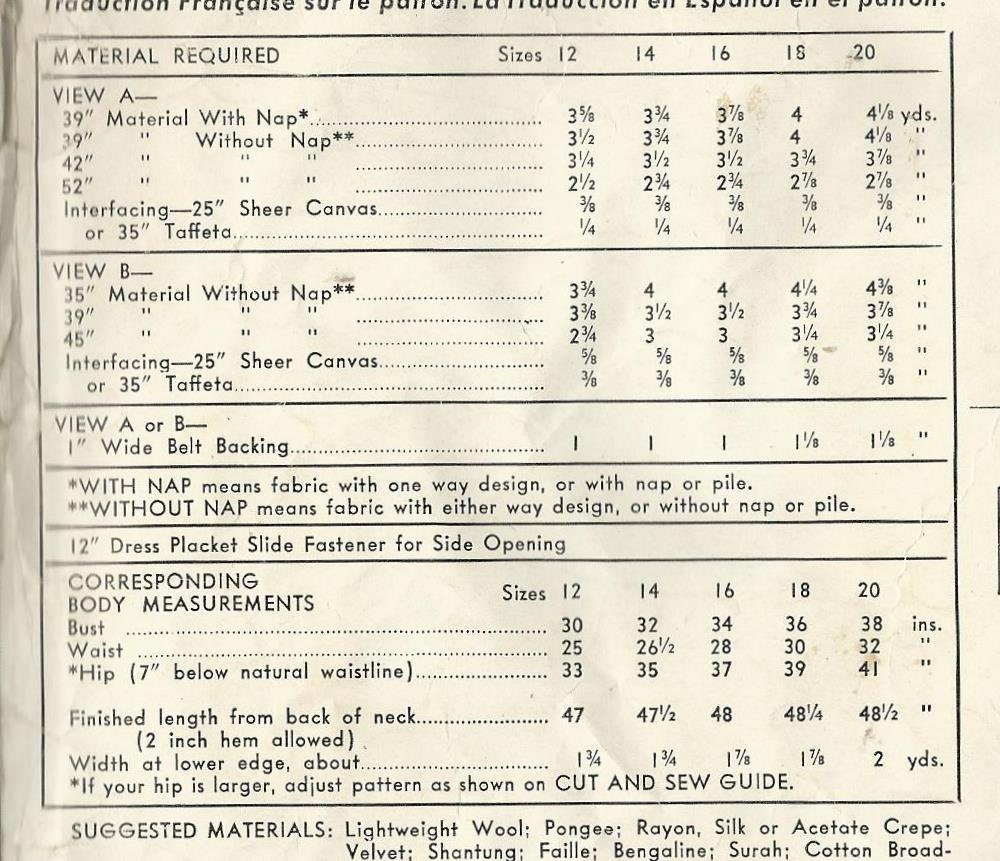 Traduction Française sur le patron. La Traducción en Español en el patrón.
MATERIAL REQUIRED Sizes 12 14 16 18 20
VIEW A—
39" Material With Nap*.......... 3⅝ 3¾ 3⅞ 4 4⅛ yds.
39" " Without Nap**.......... 3½ 3¾ 3⅞ 4 4⅛ "
42" " " " .......... 3¼ 3½ 3½ 3¾ 3⅞ "
52" " " " .......... 2½ 2¾ 2¾ 2⅞ 2⅞ "
Interfacing—25" Sheer Canvas.......... ⅜ ⅜ ⅜ ⅜ ⅜ "
or 35" Taffeta.......... ¼ ¼ ¼ ¼ ¼ "
VIEW B—
35" Material Without Nap**.......... 3¾ 4 4 4¼ 4⅜ "
39" " " " .......... 3⅜ 3½ 3½ 3¾ 3⅞ "
45" " " " .......... 2¾ 3 3 3¼ 3¼ "
Interfacing—25" Sheer Canvas.......... ⅝ ⅝ ⅝ ⅝ ⅝ "
or 35" Taffeta.......... ⅜ ⅜ ⅜ ⅜ ⅜ "
VIEW A or B—
1" Wide Belt Backing.......... 1 1 1 1⅛ 1⅛ "
*WITH NAP means fabric with one way design, or with nap or pile.
**WITHOUT NAP means fabric with either way design, or without nap or pile.
12" Dress Placket Slide Fastener for Side Opening
CORRESPONDING
BODY MEASUREMENTS Sizes 12 14 16 18 20
Bust .......... 30 32 34 36 38 ins.
Waist .......... 25 26½ 28 30 32 "
*Hip (7" below natural waistline).......... 33 35 37 39 41 "
Finished length from back of neck.......... 47 47½ 48 48¼ 48½ "
(2 inch hem allowed)
Width at lower edge, about.......... 1¾ 1¾ 1⅞ 1⅞ 2 yds.
*If your hip is larger, adjust pattern as shown on CUT AND SEW GUIDE.
SUGGESTED MATERIALS: Lightweight Wool; Pongee; Rayon, Silk or Acetate Crepe;
Velvet; Shantung; Faille; Bengaline; Surah; Cotton Broad-